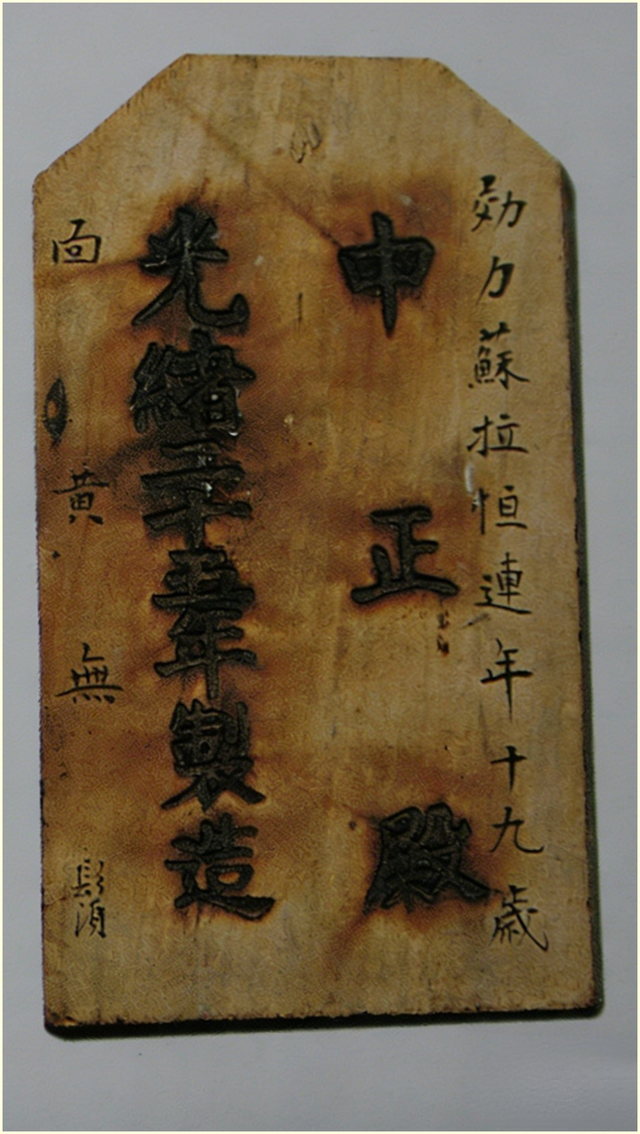 効力蘇拉恒連年十九歲
中正殿
光緒二十五年製造
面黃無鬚